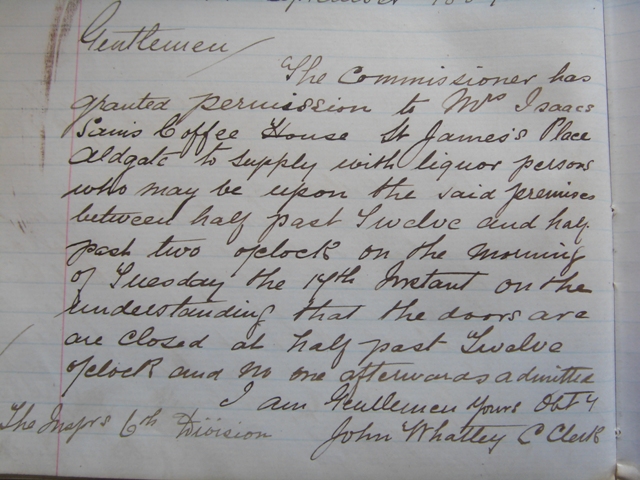 September 18
Gentlemen/
The Commissioner has
granted permission to Mrs Isaacs
Sains Coffee House St James's Place
Aldgate to supply with liquor persons
who may be upon the said premises
between half past Twelve and half
past two oclock on the morning
of Tuesday the 14th Instant on the
understanding that the doors are
are closed at half past Twelve
oclock and no one afterwards admitted
I am Gentlemen Yours Obt y
The Insprs 6th Division John Whatley C Clerk